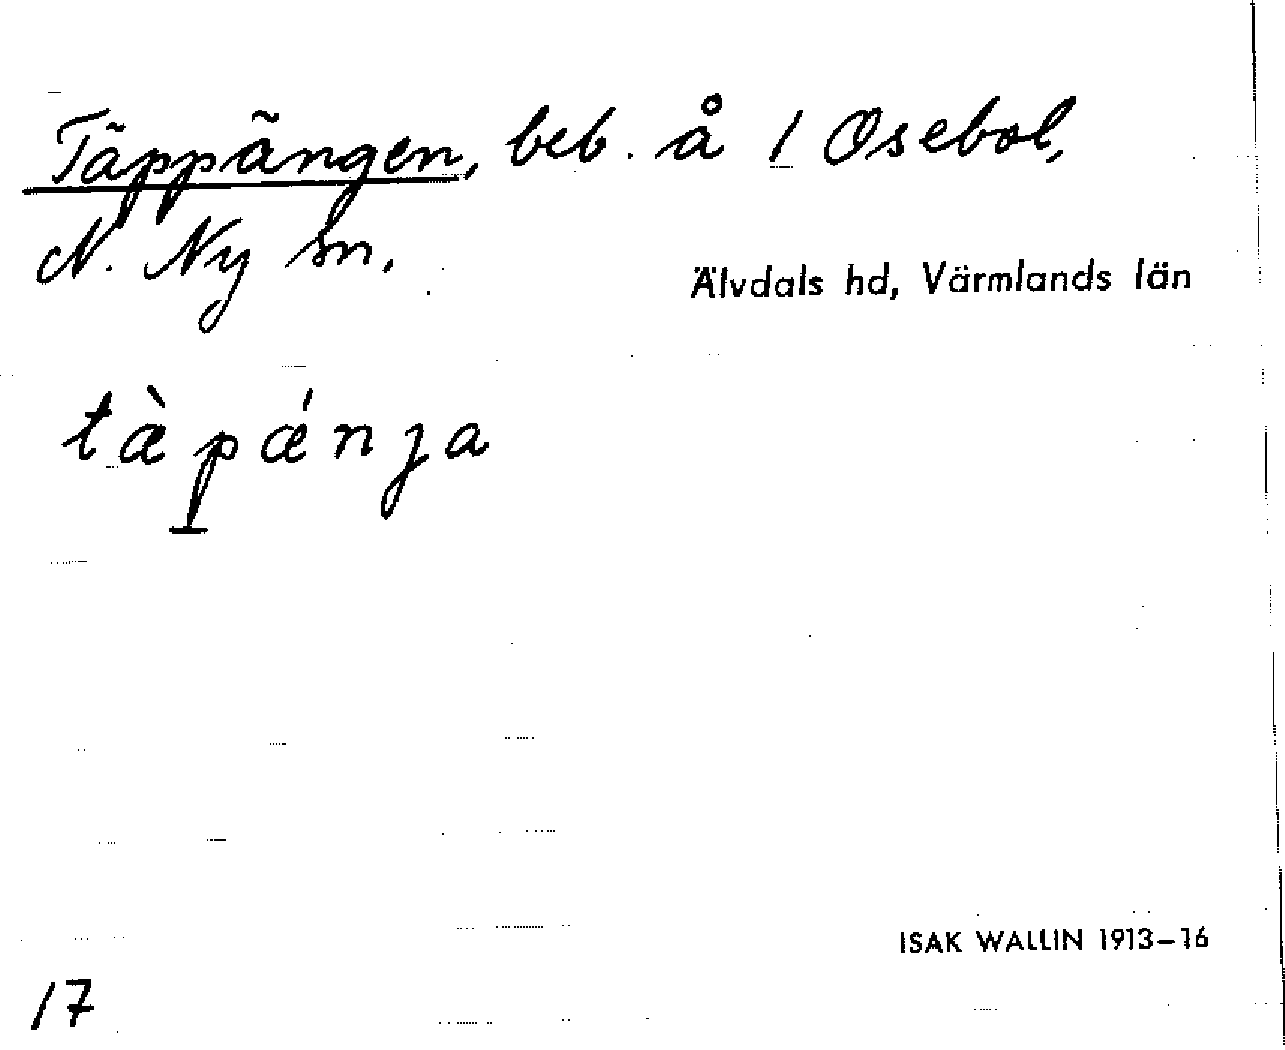 Täppängen, beb. å 1 Osebol,
N. Ny sn.
Älvdals hd, Värmlands län
tæ̀pǽnja
ISAK WALLIN 1913–16
17